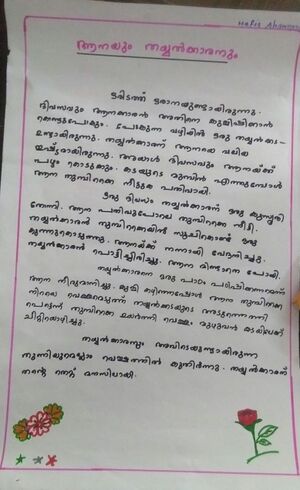 ആനയും തയ്യൽക്കാരനും
ഒരിടത്ത് ഒരാനയുണ്ടായിരുന്നു.
ദിവസവും ആനക്കാരൻ അതിനെ കുളിപ്പിക്കാൻ
കൊണ്ടുപോകും. പോകുന്ന വഴിയിൽ ഒരു തയ്യൽക്കട-
യുണ്ടായിരുന്നു. തയ്യൽക്കാരന് ആനയെ വലിയ
ഇഷ്ടമായിരുന്നു. അയാൾ ദിവസവും ആനയ്ക്ക്
പഴം കൊടുക്കും. കടയുടെ മുമ്പിൽ എത്തുമ്പോൾ
ആന തുമ്പിക്കൈ നീട്ടുക പതിവായി.
ഒരു ദിവസം തയ്യൽക്കാരന് ഒരു കുസൃതി
തോന്നി. ആന പതിവുപോലെ തുമ്പിക്കൈ നീട്ടി.
തയ്യൽക്കാരൻ തുമ്പിക്കൈയിൽ സൂചികൊണ്ട് ഒരു
കുത്തുകൊടുത്തു. ആനയ്ക്ക് നന്നായി വേദനിച്ചു.
തയ്യൽക്കാരൻ പൊട്ടിച്ചിരിച്ചു. ആന മിണ്ടാതെ പോയി.
തയ്യൽക്കാരനെ ഒരു പാഠം പഠിപ്പിക്കണമെന്ന്
ആന തീരുമാനിച്ചു. കുളി കഴിഞ്ഞപ്പോൾ ആന തുമ്പിക്കൈ
നിറയെ വെള്ളമെടുത്ത് തയ്യൽക്കടയുടെ അടുത്തെത്തി
പെട്ടെന്ന് തുമ്പിക്കൈ ഉയർത്തി വെള്ളം മുഴുവൻ കടയിലേക്ക്
ചീറ്റിക്കൊഴിച്ചു.
തയ്യൽക്കാരനും അവിടെയുണ്ടായിരുന്ന
തുണികളുമെല്ലാം വെള്ളത്തിൽ കുതിർന്നു. തയ്യൽക്കാരന്
തന്റെ തെറ്റ് മനസിലായി.